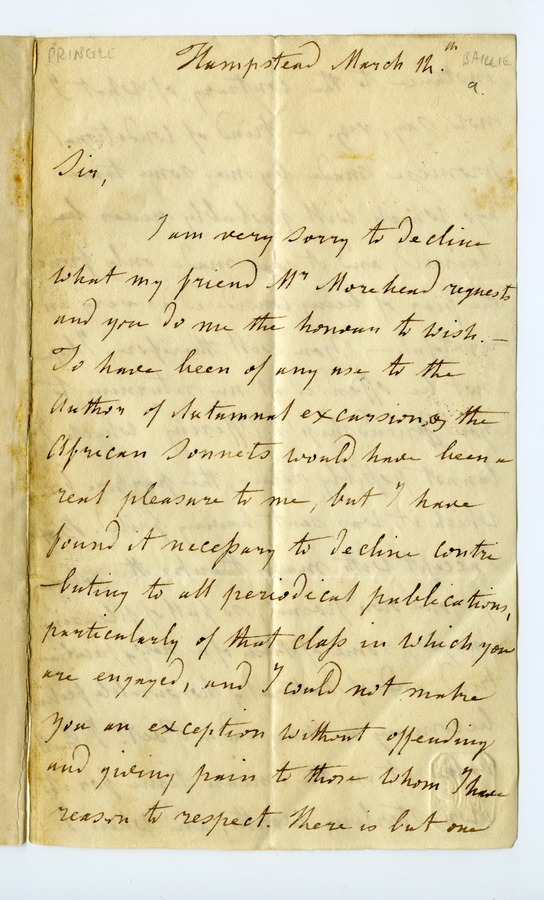 PRINGLE
BAILLIE
Hampstead March 12.th
a.
Sir,
I am very sorry to decline
what my friend Mr Morehead requests
and you do me the honour to wish. —
To have been of any use to the
Author of Autumnal excursion, & the
African Sonnets would have been a
real pleasure to me, but I have
found it necessary to decline contri
-buting to all periodical publications,
particularly of that class in which you
are engaged, and I could not make
you an exception without offending
and giving pain to those whom I have
reason to respect. There is but one